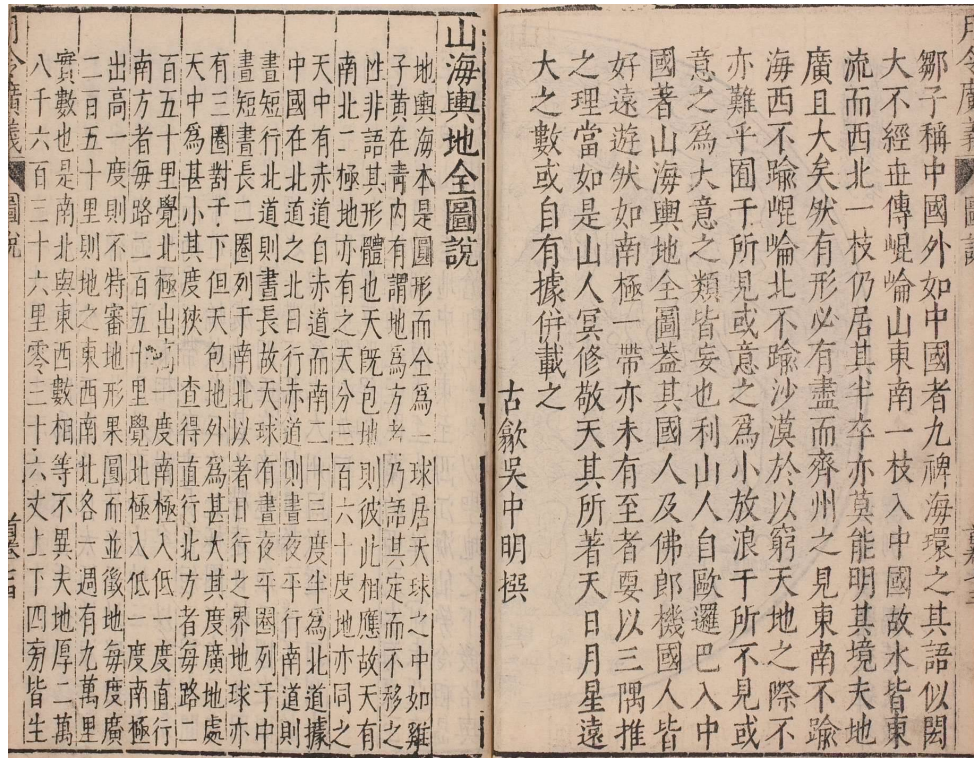 月令廣義 圖說
鄒子稱中國外如中國者九裨海環之其語似閎
大不經世傳崐崘山東南一枝入中國故水皆東
流而西北一枝仍居其半卒亦莫能明其境夫地
廣且大矣然有形必有盡而齊州之見東南不踰
海西不踰崐崘北不踰沙漠於以窮天地之際不
亦難乎囿于所見或意之爲小放浪于所不見或
意之爲大意之類皆妄也利山人自歐邏巴入中
國著山海輿地全圖葢其國人及佛郎機國人皆
好遠遊然如南極一帶亦未有至者要以三隅推
之理當如是山人冥修敬天其所著天日月星遠
大之數或自有據併載之
古歙吳中明撰
山海輿地全圖說
地輿海本是圓形而仝爲一球居天球之中如雞
子黃在青內有謂地爲方者乃語其定而不移之
性非語其形體也天旣包地則彼此相應故天有
南北二極地亦有之天分三百六十度地亦同之
天中有赤道自赤道而南二十三度半爲北道據
中國在北道之北日行赤道則晝夜平行南道則
晝短行北道則晝長故天球有晝夜平圈列于中
晝短晝長二圈列于南北以著日行之界地球亦
有三圈對于下但天包地外爲甚大其度廣地處
天中爲甚小其度狹查得直行北方者每路二
百五十里覺北極出高一度南極入低一度直行
南方者每路二百五十里覺北極入低一度南極
出高一度則不特審地形果圓而並徵地每度廣
二百五十里則地之東西南北各一週有九萬里
實數也是南北與東西數相等不異夫地厚二萬
八千六百三十六里零三十六丈上下四旁皆生
月令廣義 圖說